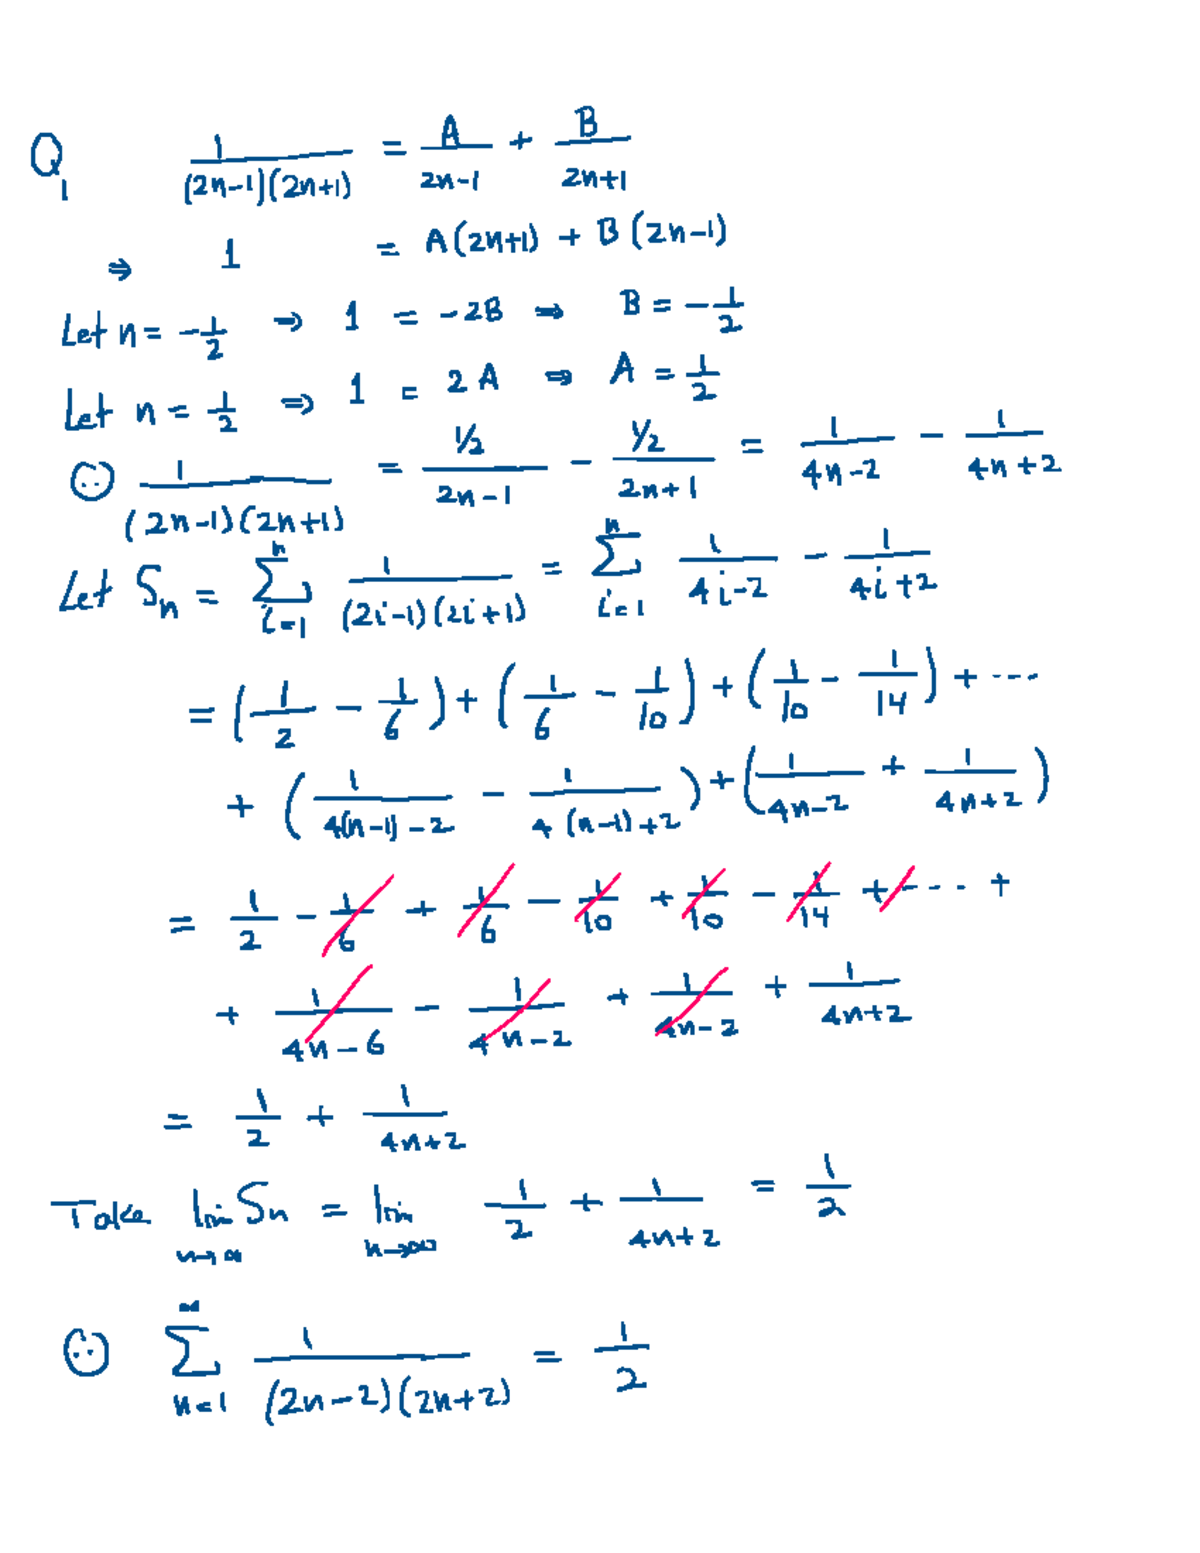 Q1 1/((2n-1)(2n+1)) = A/(2n-1) + B/(2n+1)
⇒ 1 = A(2n+1) + B(2n-1)
Let n = -1/2 ⇒ 1 = -2B ⇒ B = -1/2
Let n = 1/2 ⇒ 1 = 2A ⇒ A = 1/2
∴ 1/((2n-1)(2n+1)) = (1/2)/(2n-1) - (1/2)/(2n+1) = 1/(4n-2) - 1/(4n+2)
Let Sn = Σ_{i=1}^{n} 1/((2i-1)(2i+1)) = Σ_{i=1}^{n} 1/(4i-2) - 1/(4i+2)
= (1/2 - 1/6) + (1/6 - 1/10) + (1/10 - 1/14) + ...
+ (1/(4(n-1)-2) - 1/(4(n-1)+2)) + (1/(4n-2) + 1/(4n+2))
= 1/2 - 1/6 + 1/6 - 1/10 + 1/10 - 1/14 + ... +
+ 1/(4n-6) - 1/(4n-2) + 1/(4n-2) + 1/(4n+2)
= 1/2 + 1/(4n+2)
Take lim_{n→∞} Sn = lim_{n→∞} 1/2 + 1/(4n+2) = 1/2
∴ Σ_{n=1}^{∞} 1/((2n-2)(2n+2)) = 1/2